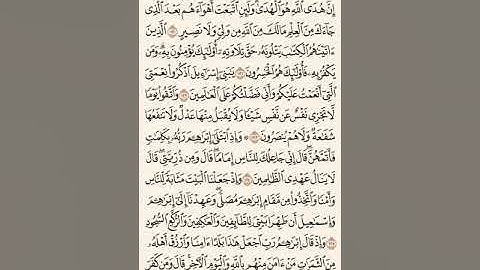 إِنَّ هُدَى ٱللَّهِ هُوَ ٱلْهُدَىٰ وَلَئِنِ ٱتَّبَعْتَ أَهْوَآءَهُم بَعْدَ ٱلَّذِى
جَآءَكَ مِنَ ٱلْعِلْمِ مَا لَكَ مِنَ ٱللَّهِ مِن وَلِىٍّ وَلَا نَصِيرٍ ٱلَّذِينَ
ءَاتَيْنَٰهُمُ ٱلْكِتَٰبَ يَتْلُونَهُۥ حَقَّ تِلَاوَتِهِۦٓ أُو۟لَٰٓئِكَ يُؤْمِنُونَ بِهِۦ وَمَن
يَكْفُرْ بِهِۦ فَأُو۟لَٰٓئِكَ هُمُ ٱلْخَٰسِرُونَ يَٰبَنِىٓ إِسْرَٰٓءِيلَ ٱذْكُرُوا۟ نِعْمَتِىَ
ٱلَّتِىٓ أَنْعَمْتُ عَلَيْكُمْ وَأَنِّى فَضَّلْتُكُمْ عَلَى ٱلْعَٰلَمِينَ وَٱتَّقُوا۟ يَوْمًا
لَّا تَجْزِى نَفْسٌ عَن نَّفْسٍ شَيْـًٔا وَلَا يُقْبَلُ مِنْهَا عَدْلٌ وَلَا تَنفَعُهَا
شَفَٰعَةٌ وَلَا هُمْ يُنصَرُونَ ۞ وَإِذِ ٱبْتَلَىٰٓ إِبْرَٰهِۦمَ رَبُّهُۥ بِكَلِمَٰتٍ
فَأَتَمَّهُنَّ قَالَ إِنِّى جَاعِلُكَ لِلنَّاسِ إِمَامًا قَالَ وَمِن ذُرِّيَّتِى قَالَ
لَا يَنَالُ عَهْدِى ٱلظَّٰلِمِينَ وَإِذْ جَعَلْنَا ٱلْبَيْتَ مَثَابَةً لِّلنَّاسِ
وَأَمْنًا وَٱتَّخِذُوا۟ مِن مَّقَامِ إِبْرَٰهِۦمَ مُصَلًّى وَعَهِدْنَآ إِلَىٰٓ إِبْرَٰهِۦمَ
وَإِسْمَٰعِيلَ أَن طَهِّرَا بَيْتِىَ لِلطَّآئِفِينَ وَٱلْعَٰكِفِينَ وَٱلرُّكَّعِ ٱلسُّجُودِ
وَإِذْ قَالَ إِبْرَٰهِۦمُ رَبِّ ٱجْعَلْ هَٰذَا بَلَدًا ءَامِنًا وَٱرْزُقْ أَهْلَهُۥ
مِنَ ٱلثَّمَرَٰتِ مَنْ ءَامَنَ مِنْهُم بِٱللَّهِ وَٱلْيَوْمِ ٱلْـَٔاخِرِ قَالَ وَمَن كَفَرَ